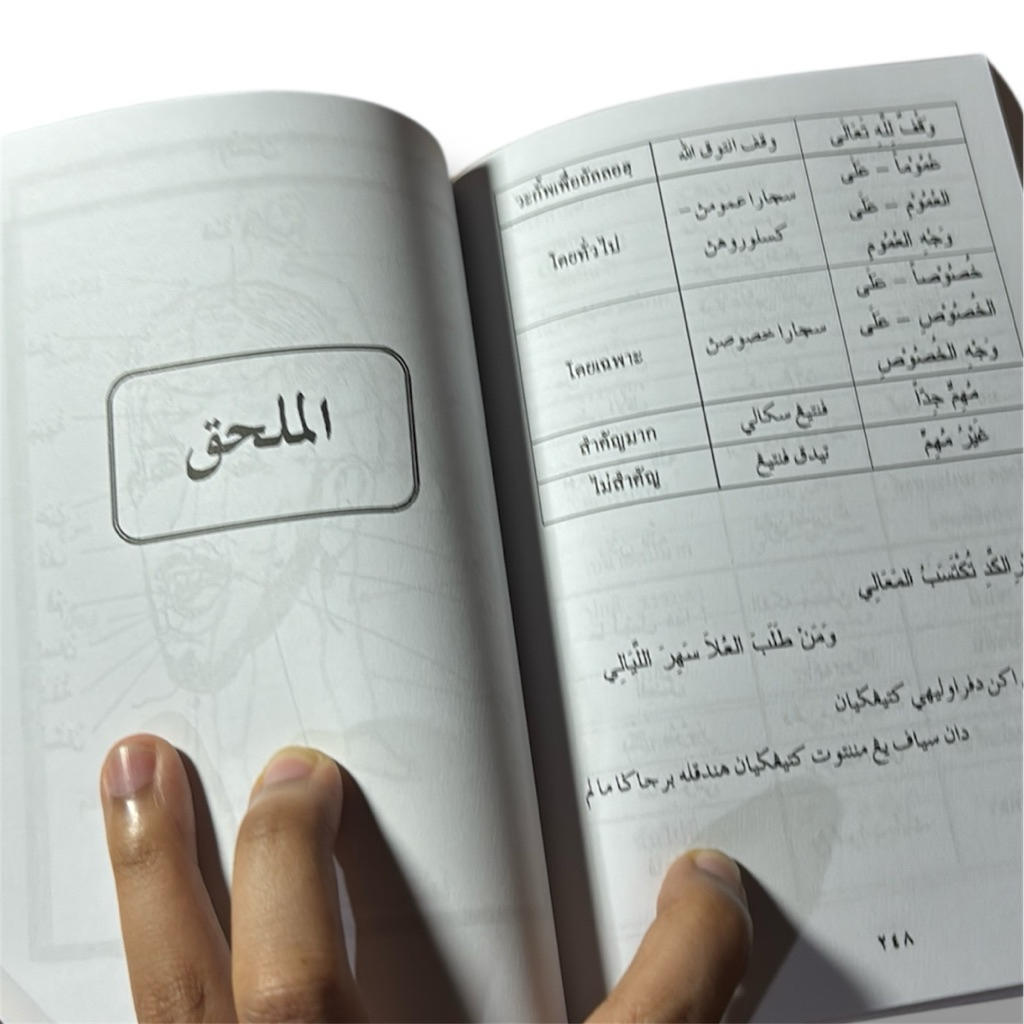 وَقْفٌ لِلّٰهِ تَعَالَى
وقف انتوق الله
วะกัฟเพื่ออัลลอฮฺ
عُمُوْماً – عَلَى
العُمُوْمِ – عَلَى
وَجْهِ العُمُوْمِ
سچارا عمومن –
کسلوروهن
โดยทั่วไป
خُصُوْصاً – عَلَى
الخُصُوْصِ – عَلَى
وَجْهِ الخُصُوْصِ
سچارا خصوصن
โดยเฉพาะ
مُهِمٌّ جِدّاً
فنتيڠ سکالي
สำคัญมาก
غَيْرُ مُهِمٍّ
تيدق فنتيڠ
ไม่สำคัญ
الكَّدِ تُكْتَسَبُ المَعَالِي
وَمَنْ طَلَبَ العُلاَ سَهِرَ اللَّيَالِي
اکن دفراوليهي کتيڠݢيان
دان سياف يڠ مننتوت کتيڠݢيان هندقله برجاݢ مالم
٢٤٨
الملحق